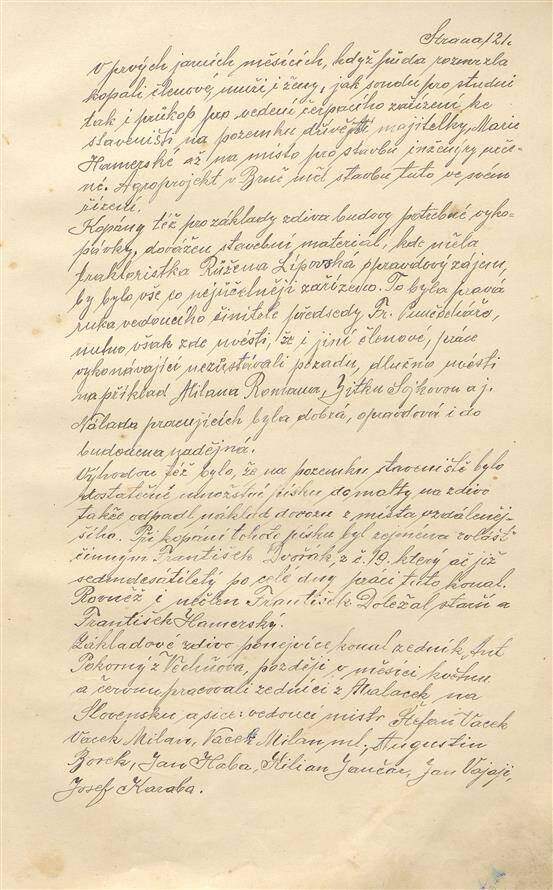 Strana 121.
V prvých jarních měsících, když půda rozmrzla
kopali členové, muži i ženy, jak sondu pro studni
tak i průkop pro vedení čerpacího zařízení ke
staveništi na pozemku dřívější majitelky, Marie
Hamerské až na místo pro stavbu inženýry urče-
né. Agroprojekt v Brně měl stavbu tuto ve svém
řízení.
Kopány též pro základy zdiva budovy potřebné výko-
pávky, dovážen stavební materiál, kde měla
traktoristka Růžena Lipovská opravdový zájem,
by bylo vše co nejúčelněji zařízeno. To byla pravá
ruka vedoucího činitele předsedy Fr.
nutno však zde uvésti, že i jiní členové, práce
vykonávající nezůstávali pozadu, dlužno uvésti
na příklad Milana Romana, Zitku Sojkovou a j.
Nálada pracujících byla dobrá, opravdová i do
budoucna nadějná.
Výhodou též bylo, že na pozemku staveniště bylo
dostatečné množství písku do malty na zdivo
takže odpadl náklad dovozu z místa vzdáleněj-
šího. Při kopání tohoto písku byl zejména zvlášť
činným František Dvořák, z č. 19. který ač již
sedmdesátiletý po celé dny práci tuto konal.
Rovněž i nečlen František Doležal starší a
František Hamerský.
Základové zdivo ponejvíce konal zedník, Ant.
Pokorný z později v měsíci květnu
a červnu pracovali zedníci z Malacek na
Slovensku a sice: vedoucí mistr Štefan Vacek
Vacek Milan, Vacek Milan ml., Augustin
Borek, Jan Haba, Kilian Jančár, Jan
Josef Karaba.